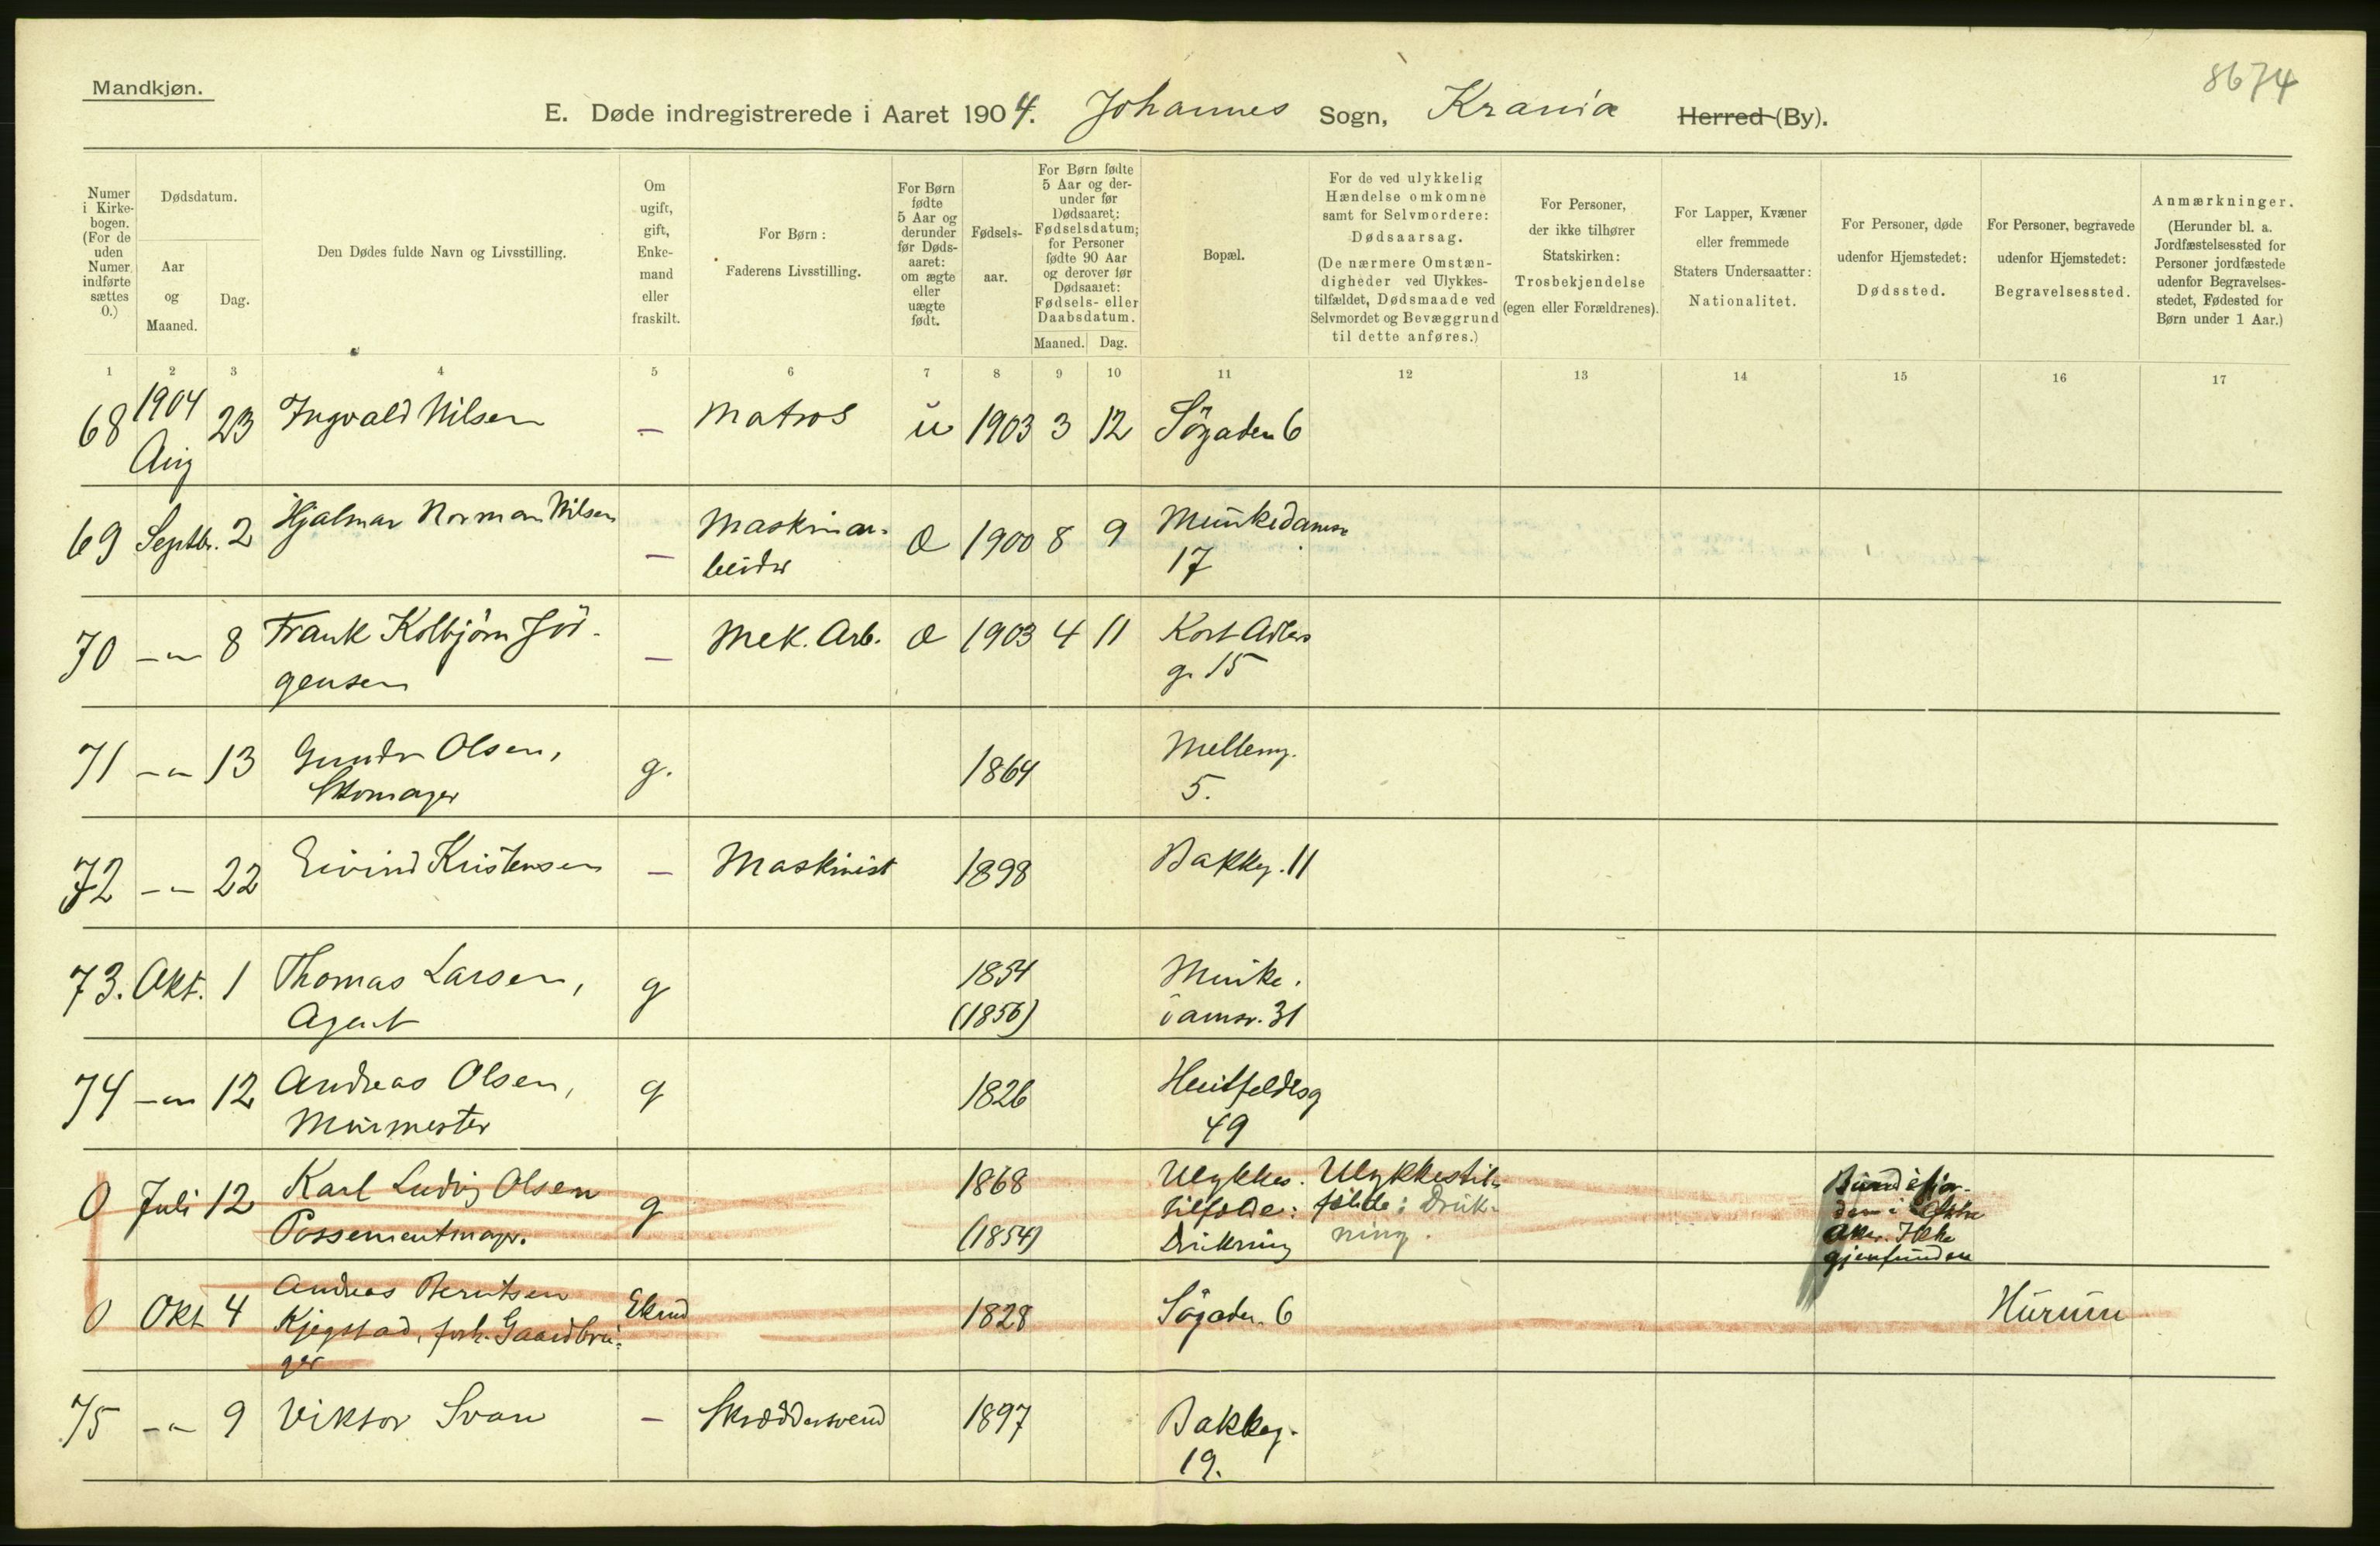 8674
Mandkjøn.
E. Døde indregistrerede i Aaret 1904. Johannes Sogn, Krania Herred (By).
Numer i Kirkebogen. (For de uden Numer indførte sættes 0.)
Dødsdatum.
Aar og Maaned.
Dag.
Den Dødes fulde Navn og Livsstilling.
Om ugift, gift, Enkemand eller fraskilt.
For Børn: Faderens Livsstilling.
For Børn fødte 5 Aar og derunder før Dødsaaret: om ægte eller uægte født.
Fødselsaar.
For Børn fødte 5 Aar og derunder før Dødsaaret: Fødselsdatum; for Personer fødte 90 Aar og derover før Dødsaaret: Fødsels- eller Daabsdatum.
Maaned. Dag.
Bopæl.
For de ved ulykkelig Hændelse omkomne samt for Selvmordere: Dødsaarsag. (De nærmere Omstændigheder ved Ulykkestilfældet, Dødsmaade ved Selvmordet og Bevæggrund til dette anføres.)
For Personer, der ikke tilhører Statskirken: Trosbekjendelse (egen eller Forældrenes).
For Lapper, Kvæner eller fremmede Staters Undersaatter: Nationalitet.
For Personer, døde udenfor Hjemstedet: Dødssted.
For Personer, begravede udenfor Hjemstedet: Begravelsessted.
Anmærkninger. (Herunder bl. a. Jordfæstelsessted for Personer jordfæstede udenfor Begravelsesstedet, Fødested for Børn under 1 Aar.)
1 2 3 4 5 6 7 8 9 10 11 12 13 14 15 16 17
68 1904 Aug 23 Ingvald Nilsen — Matros u 1903 3 12 Søgaden 6
69 Septbr. 2 Hjalmar Norman Nilsen — Maskinarbeider æ 1900 8 9 Munkedamsv 17
70 —"— 8 Frank Kolbjørn Jørgensen — Mek. Arb. æ 1903 4 11 Kort Adlers g. 15
71 —"— 13 Gunder Olsen, Skomager g. 1864 Melleng. 5.
72 —"— 22 Eivind Kristensen — Maskinist 1898 Bakkeg. 11
73. Okt. 1 Thomas Larsen, Agent g 1854 (1856) Munkedamsv. 31
74 —"— 12 Andreas Olsen, Murmester g 1826 Huitfeldtsg 49
0 Juli 12 Karl Ludvig Olsen Possementmagr. g 1868 (1854) Ulykkestilfælde: Drukning Ulykkestilfælde: Drukning. Bundefjorden i Østre Aker. Ikke gjenfunden
0 Okt 4 Andreas Berntsen Kjegstad, forh. Gaardbruger Ekmd 1828 Søgaden 6 Hurum
75 —"— 9 Viktor Svan — Skræddersvend 1897 Bakkeg. 19.